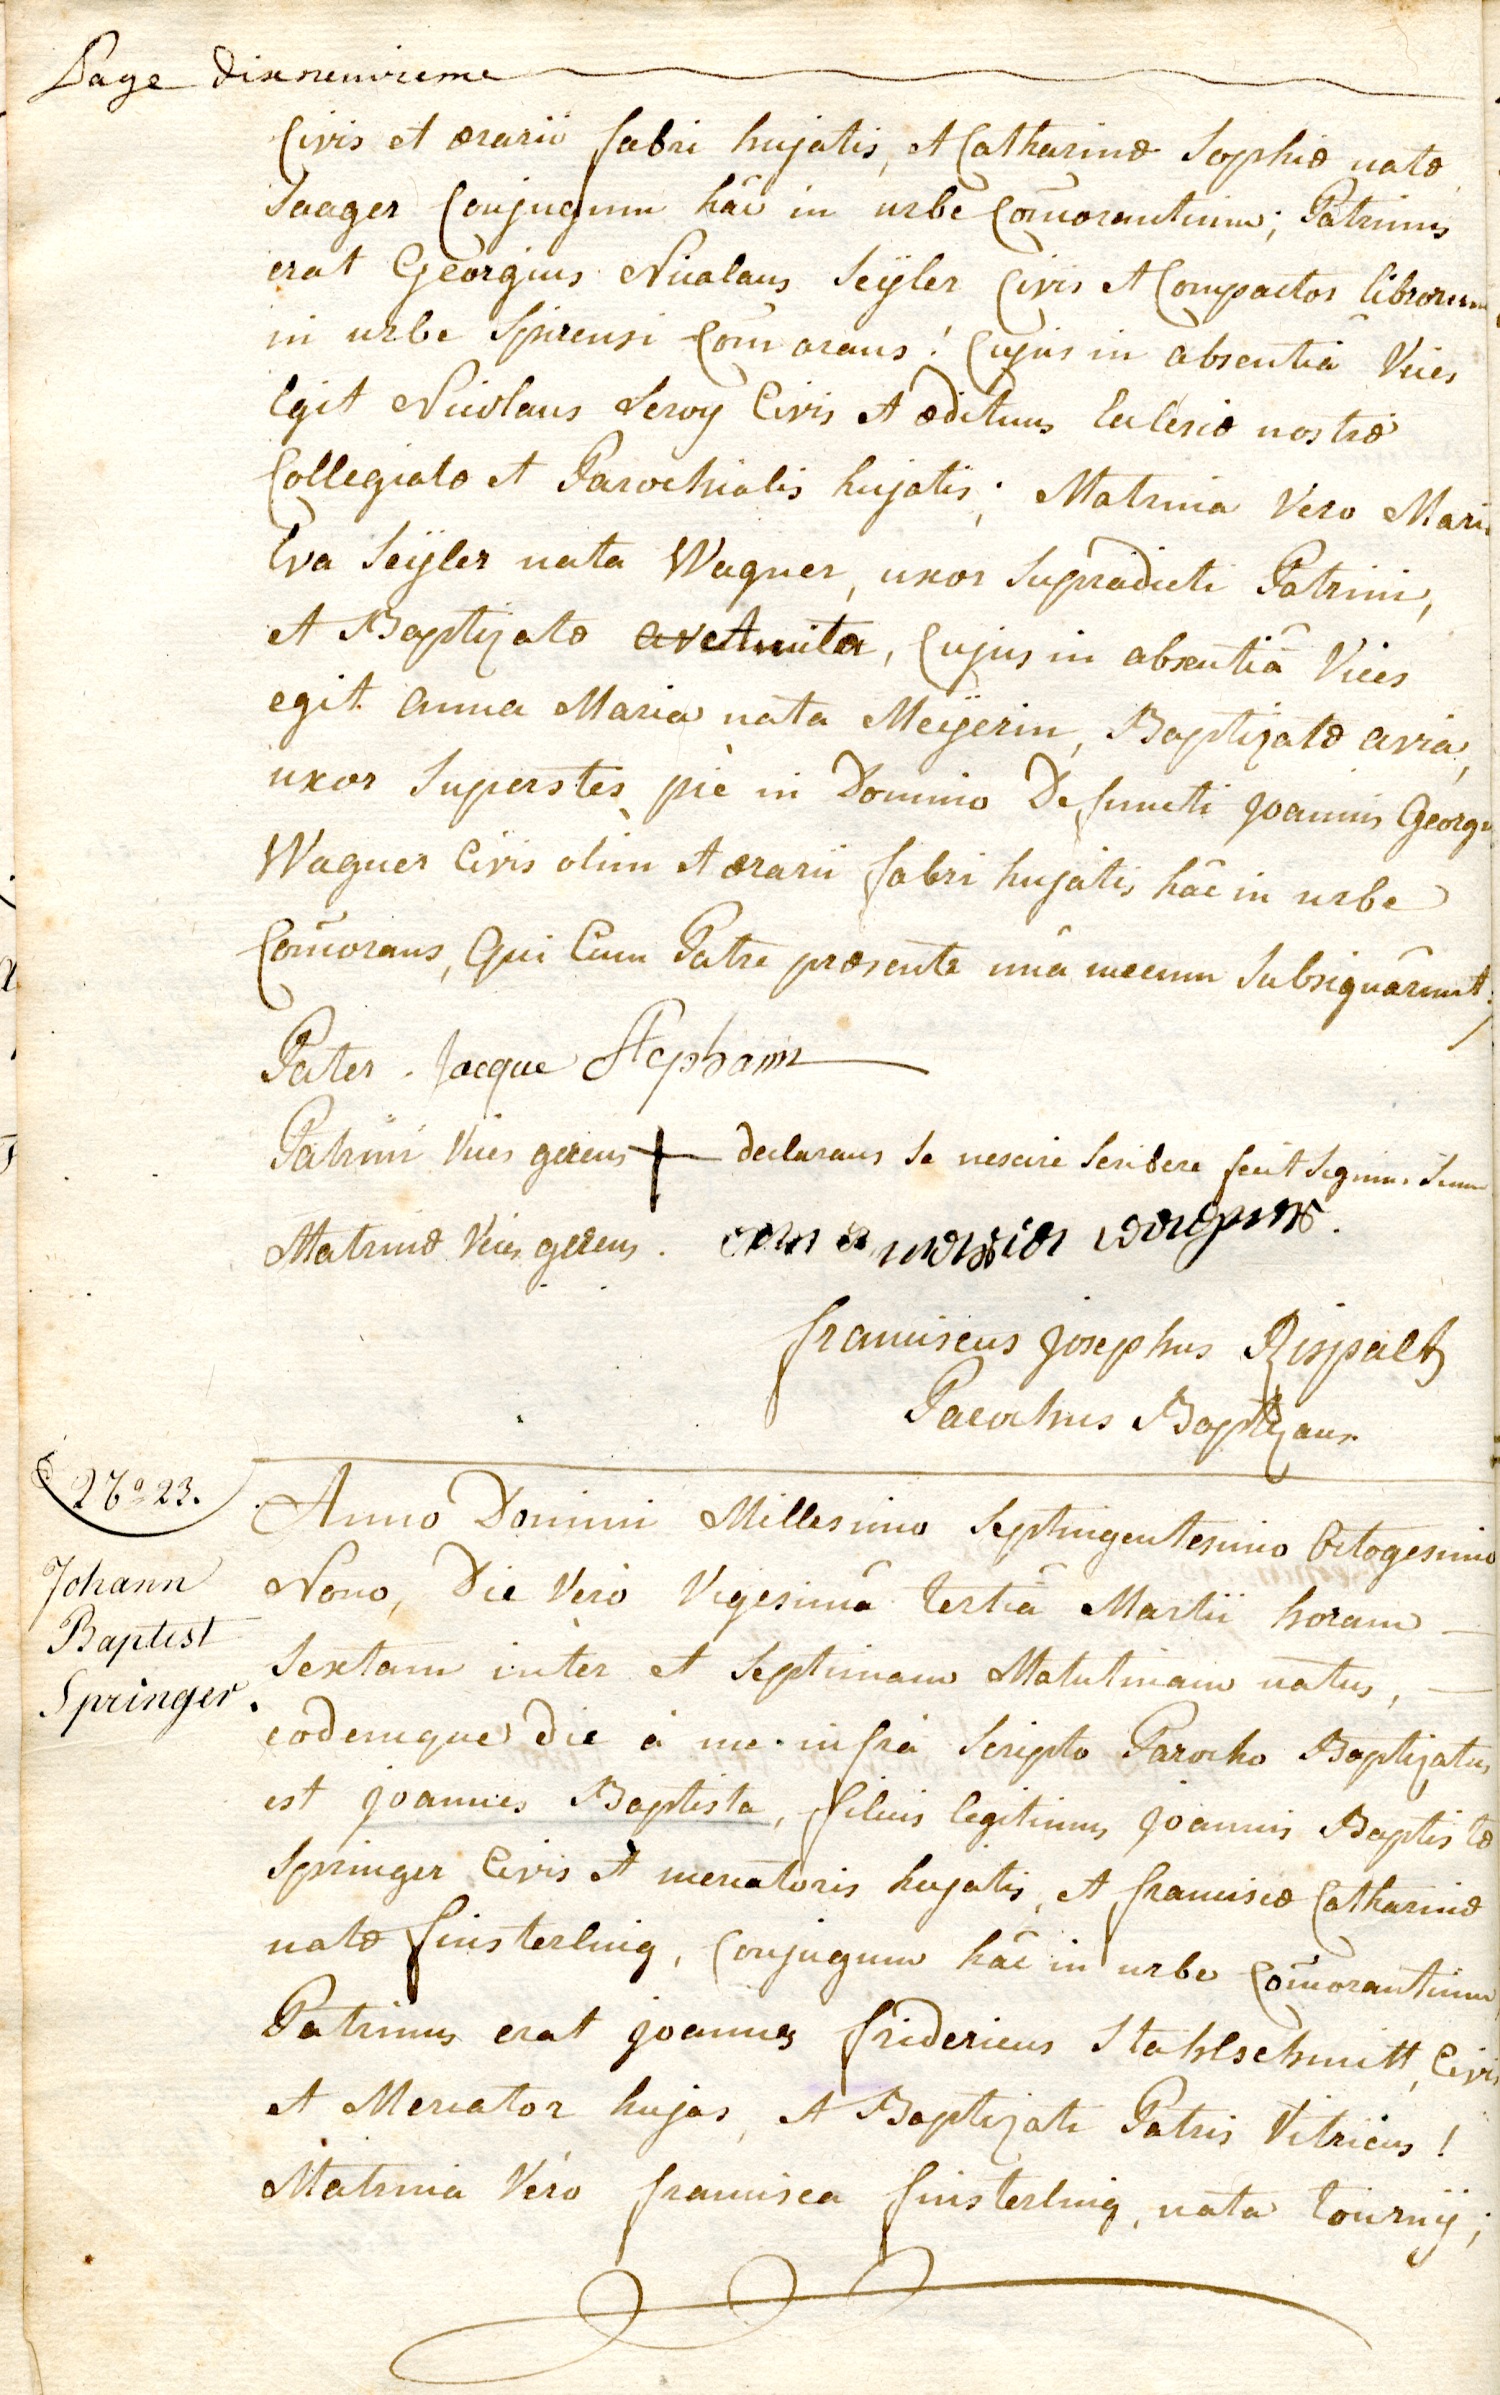 Page dixneuvieme
Civis et ærarii fabri hujatis, et Catharinæ Sophiæ natæ
Jaager Conjugum hâc in urbe Com̃orantium; Patrinus
erat Georgius Nicolaus Seÿler Civis et Compactor librorum
in urbe Spirensi Com̃orans! Cujus in absentiâ Vices
Egit Nicolaus Leroy Civis et ædituus Ecclesiæ nostræ
Collegiatæ et Parochialis hujatis; Matrina Vero Maria
Eva Seÿler nata Wagner, uxor Supradicti Patrini,
et Baptizatæ Amita, Cujus in absentiâ Vices
egit Anna Maria nata Meÿerin, Baptizatæ avia,
uxor Superstes piè in Domino Defuncti Joannis Georgii
Wagner Civis olim et ærarii fabri hujatis hâc in urbe
Com̃orans, Qui Cum Patre præsente unâ mecum Subsignârunt;
Pater. Jacque Stephann
Patrini Vices gerens + declarans Se nescire Scribere fecit Signum Suum
Matrinæ Vices gerens.
franciscus Josephus Rispalt
Parochus Baptizans.
27º 23.
Johann
Baptist
Springer.
Anno Domini Millesimo Septingentesimo Octogesimo
Nono, Die Vero Vigesimâ tertiâ Martii horam
Sextam inter et Septimam Matutinam natus,
eodemque die à me infrà Scripto Parocho Baptizatus
est Joannes Baptista, filius legitimus Joannis Baptistæ
Springer Civis et mercatoris hujatis, et franciscæ Catharinæ
natæ finsterling, Conjugum hâc in urbe Com̃orantium
Patrinus erat Joannes fridericus Stahlschmitt, Civis
et Mercator hujas, et Baptizati Patris Vitricus!
Matrina Vero francisca finsterling, nata tournÿ;